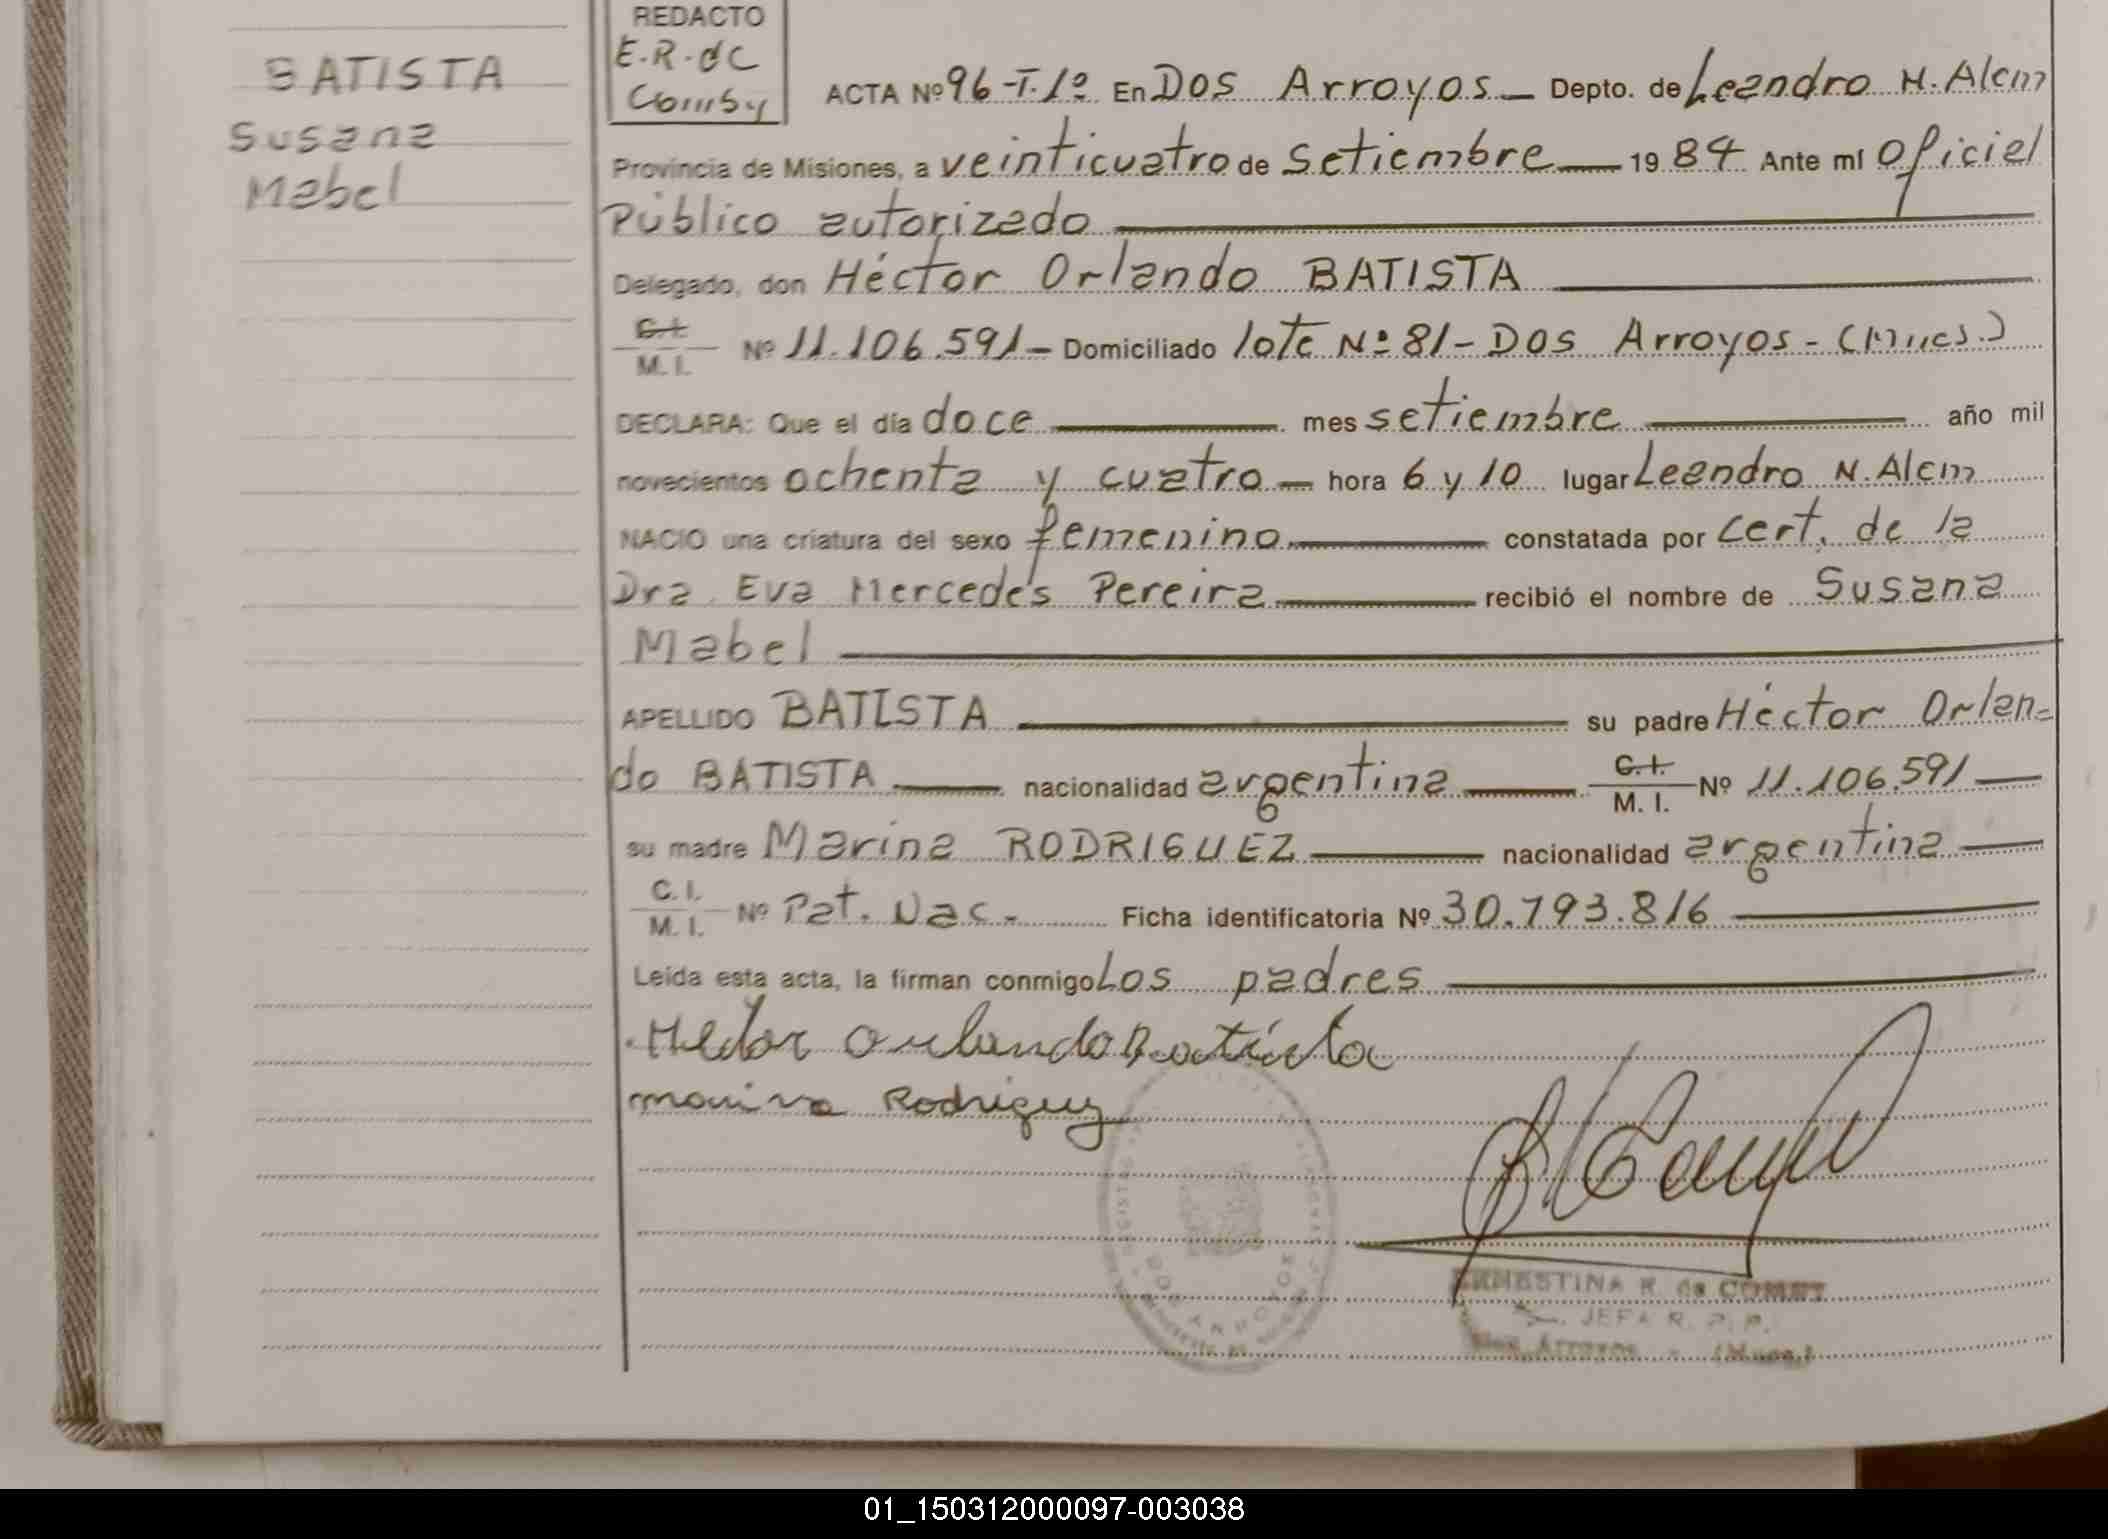 BATISTA
Susana
Mabel
REDACTO
E.R. de
Comby
ACTA Nº 96-T.1º En Dos Arroyos — Depto. de Leandro N. Alem
Provincia de Misiones, a veinticuatro de setiembre — 19 84 Ante mí Oficial
Público autorizado
Delegado, don Héctor Orlando BATISTA
C.I.
M. I. Nº 11.106.591 — Domiciliado lote Nº 81 - Dos Arroyos - (Mnes.)
DECLARA: Que el día doce mes setiembre año mil
novecientos ochenta y cuatro — hora 6 y 10 lugar Leandro N. Alem
NACIO una criatura del sexo femenino constatada por Cert. de la
Dra. Eva Mercedes Pereira recibió el nombre de Susana
Mabel
APELLIDO BATISTA su padre Héctor Orlan=
do BATISTA nacionalidad argentina C.I.
M. I. Nº 11.106.591 —
su madre Marina RODRIGUEZ nacionalidad argentina
C. I.
M. I. Nº Pat. Nac. - Ficha identificatoria Nº 30.793.816
Leída esta acta, la firman conmigo Los padres
Hector Orlando Batista
marina Rodriguez
DOS ARROYOS
ERNESTINA R. de COMBY
JEFA R. P. P.
Dos Arroyos - (Mnes.)
01_150312000097-003038